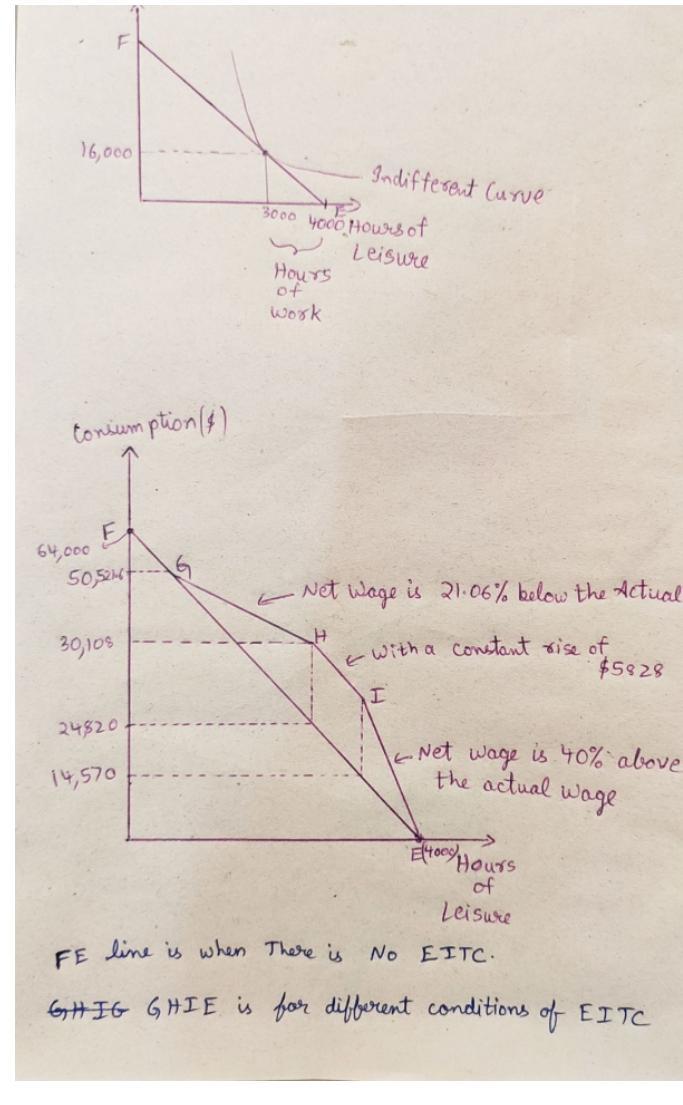 F
16,000
Indifferent Curve
3000 4000 E Hours of
Leisure
Hours
of
work
Consumption($)
F
64,000
50,526
G
Net Wage is 21.06% below the Actual
30,108
H
With a constant rise of
$5828
I
24820
Net wage is 40% above
the actual wage
14,570
E(4000) Hours
of
Leisure
FE line is when There is No EITC.
GHIG GHIE is for different conditions of EITC